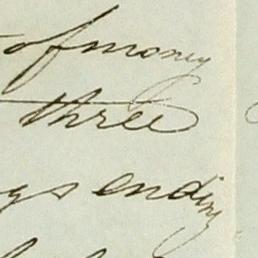 of money
three
ending